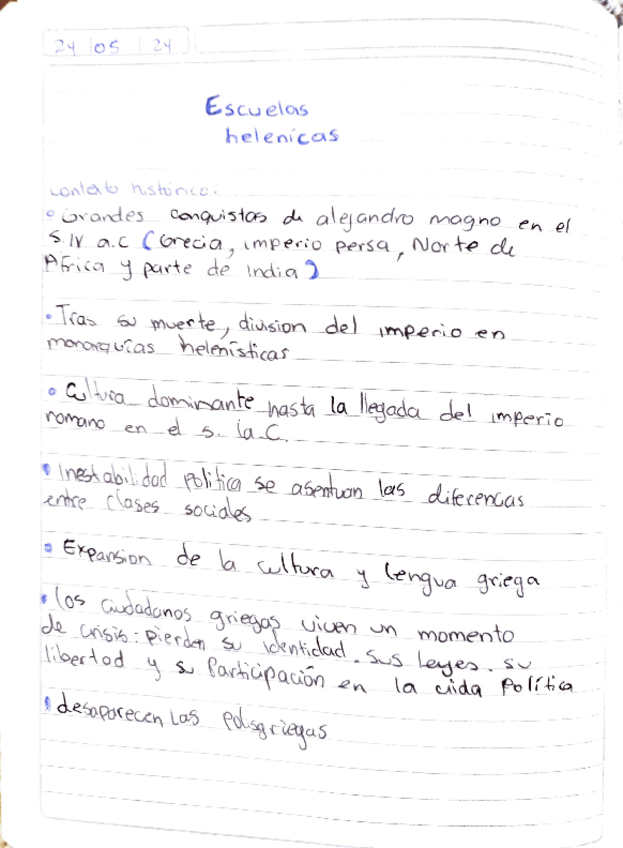 24 05 24
Escuelas
helenicas
contexto historico:
• Grandes conquistas de alejandro magno en el
S.IV a.c (Grecia, imperio persa, Norte de
Africa y parte de India)
• Tras su muerte, division del imperio en
monarquías helenísticas
• Cultura dominante hasta la llegada del imperio
romano en el s. Ia.C.
• Inestabilidad politica se asentuan las diferencias
entre clases sociales
• Expansion de la cultura y lengua griega
• los ciudadanos griegas viven un momento
de crisis: pierden su identidad. sus leyes. su
libertad y su Participación en la vida Política
• desaparecen las polisgriegas